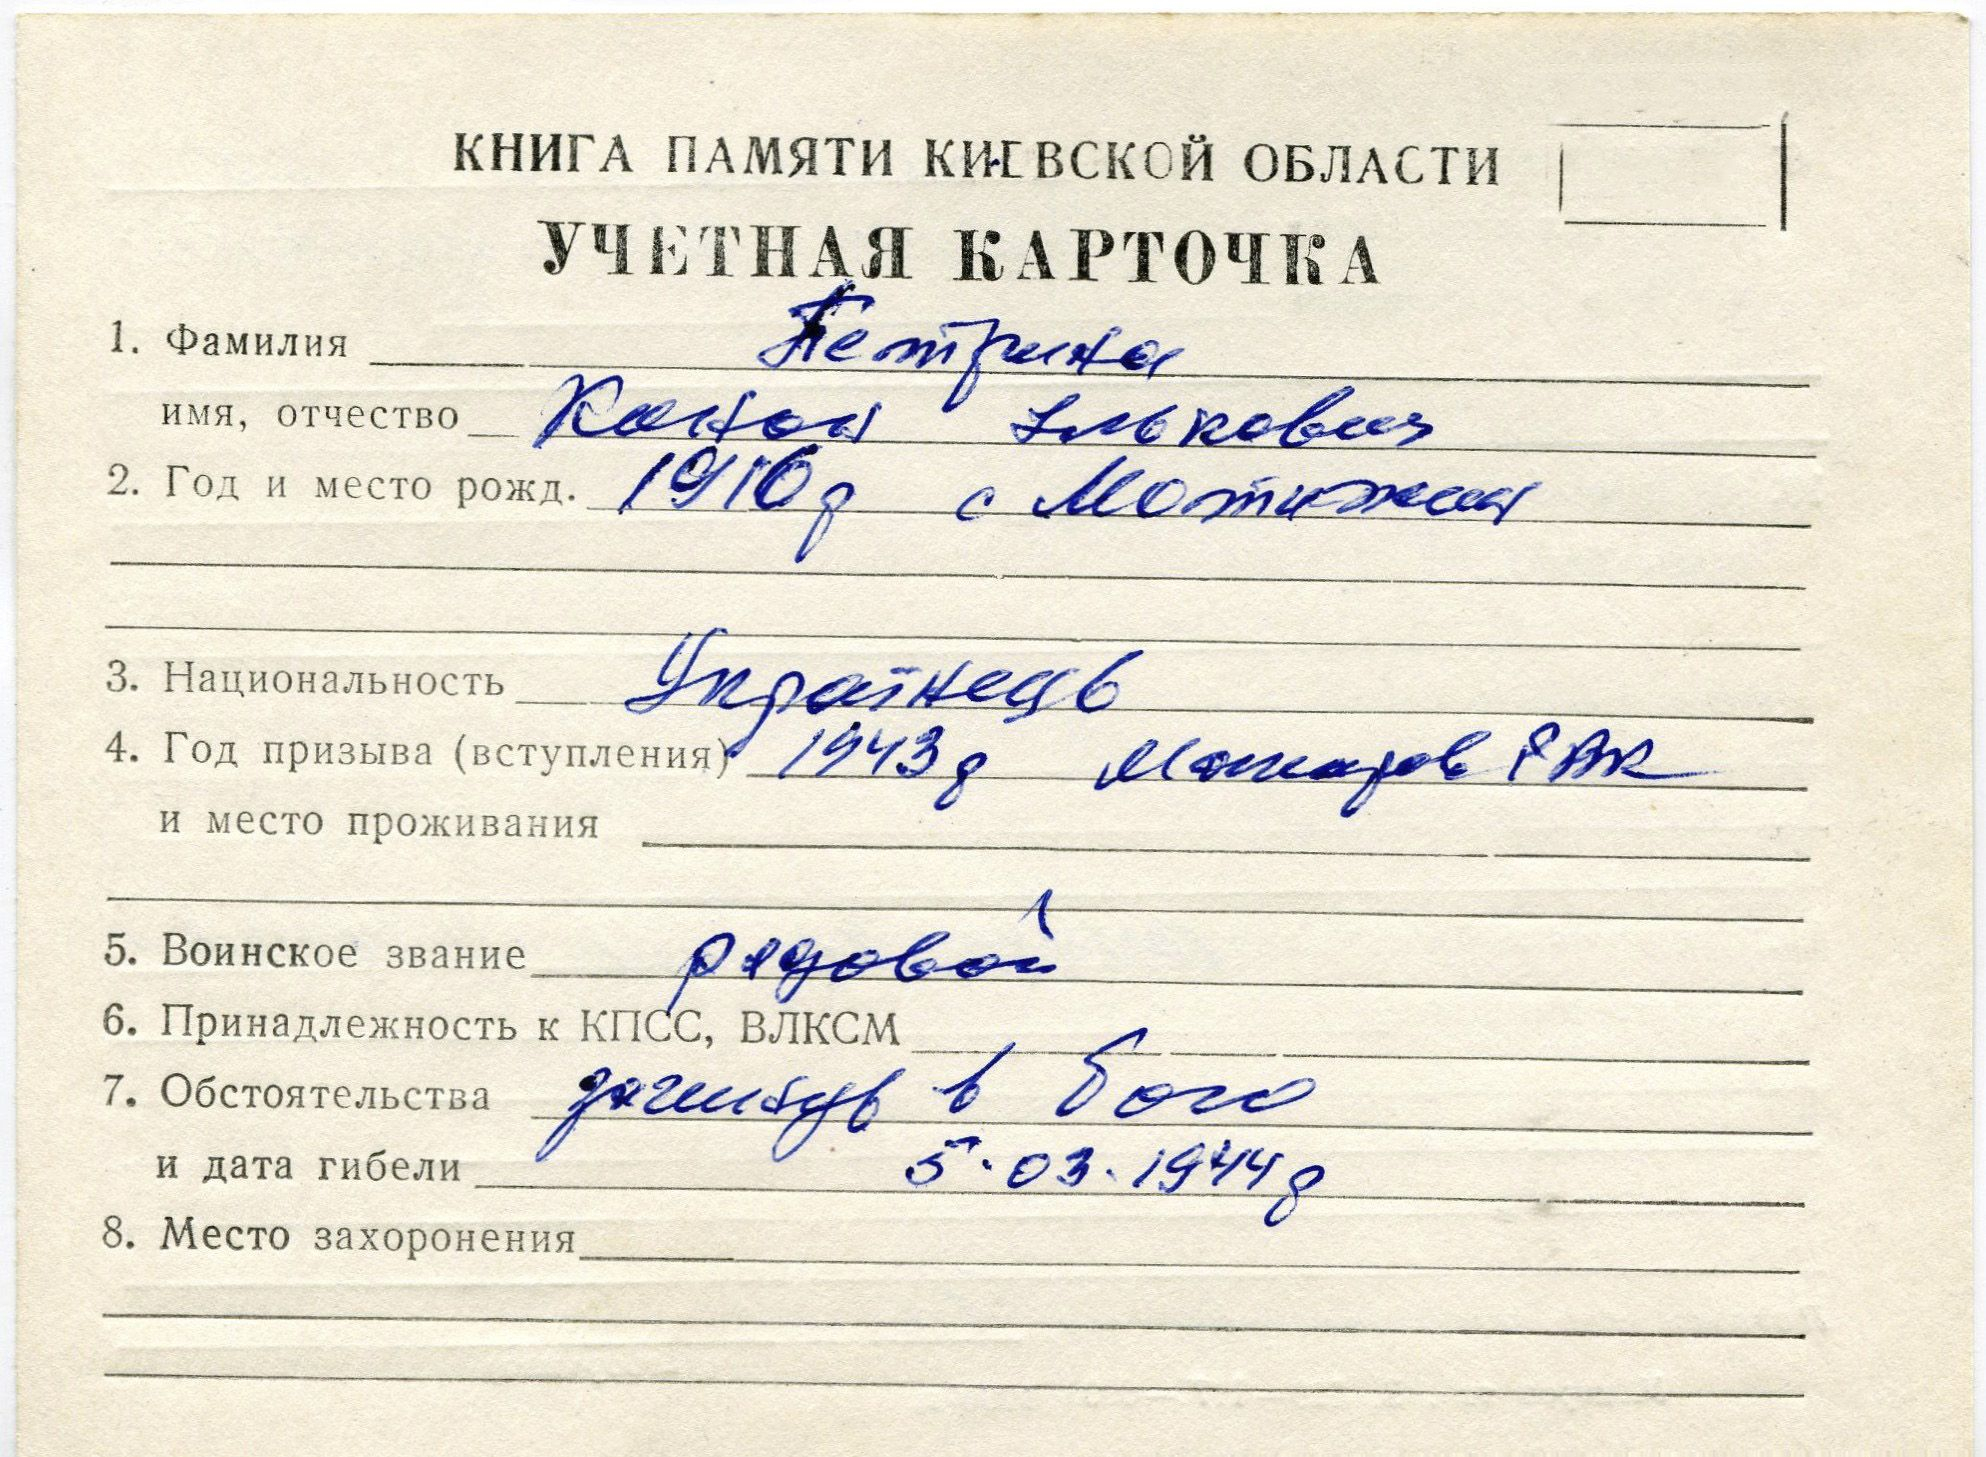 КНИГА ПАМЯТИ КИЕВСКОЙ ОБЛАСТИ
УЧЕТНАЯ КАРТОЧКА
1. Фамилия Петрина
имя, отчество Конон Ількович
2. Год и место рожд. 1910р с Мотижин
3. Национальность Українець
4. Год призыва (вступления) 1943р Макаров РВК
и место проживания
5. Воинское звание рядовой
6. Принадлежность к КПСС, ВЛКСМ
7. Обстоятельства загинув в бою
и дата гибели 5.03.1944р
8. Место захоронения